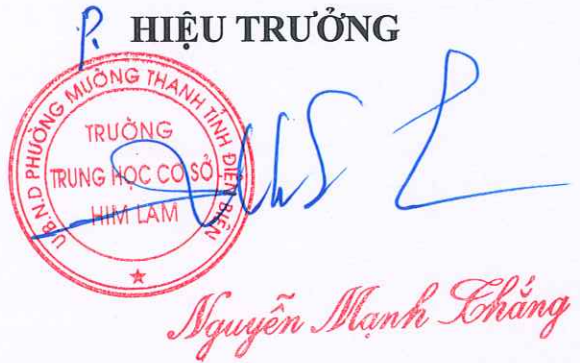 P. HIỆU TRƯỞNG
U.B.N.D PHƯỜNG MƯỜNG THANH TỈNH ĐIỆN BIÊN
TRƯỜNG
TRUNG HỌC CƠ SỞ
HIM LAM
Nguyễn Mạnh Thắng